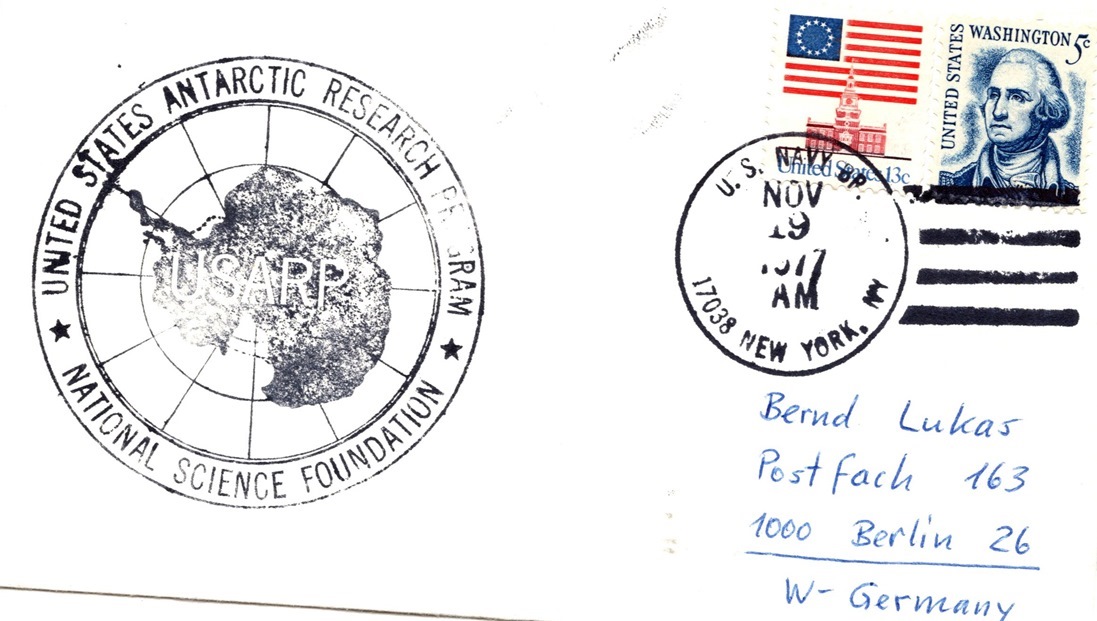 UNITED STATES ANTARCTIC RESEARCH PROGRAM
USARP
NATIONAL SCIENCE FOUNDATION
United States 13c
UNITED STATES
WASHINGTON 5c
U. S. NAVY BR.
NOV
19
1977
AM
17038 NEW YORK, NY
Bernd Lukas
Postfach 163
1000 Berlin 26
W- Germany